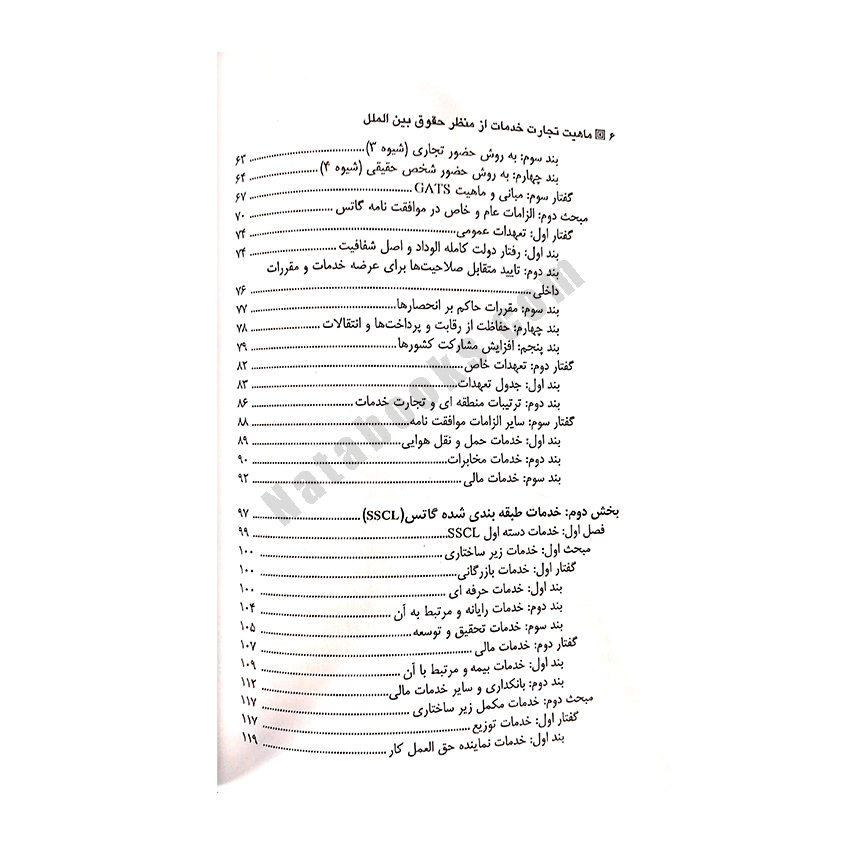 ۶ ماهیت تجارت خدمات از منظر حقوق بین الملل
بند سوم: به روش حضور تجاری (شیوه ۳) ۶۳
بند چهارم: به روش حضور شخص حقیقی (شیوه ۴) ۶۴
گفتار سوم: مبانی و ماهیت GATS ۶۷
مبحث دوم: الزامات عام و خاص در موافقت نامه گاتس ۷۰
گفتار اول: تعهدات عمومی ۷۴
بند اول: رفتار دولت کامله الوداد و اصل شفافیت ۷۴
بند دوم: تایید متقابل صلاحیت‌ها برای عرضه خدمات و مقررات
داخلی ۷۶
بند سوم: مقررات حاکم بر انحصارها ۷۷
بند چهارم: حفاظت از رقابت و پرداخت‌ها و انتقالات ۷۸
بند پنجم: افزایش مشارکت کشورها ۷۹
گفتار دوم: تعهدات خاص ۸۲
بند اول: جدول تعهدات ۸۳
بند دوم: ترتیبات منطقه ای و تجارت خدمات ۸۶
گفتار سوم: سایر الزامات موافقت نامه ۸۸
بند اول: خدمات حمل و نقل هوایی ۸۹
بند دوم: خدمات مخابرات ۹۰
بند سوم: خدمات مالی ۹۲
بخش دوم: خدمات طبقه بندی شده گاتس(SSCL) ۹۷
فصل اول: خدمات دسته اول SSCL ۹۹
مبحث اول: خدمات زیر ساختاری ۱۰۰
گفتار اول: خدمات بازرگانی ۱۰۰
بند اول: خدمات حرفه ای ۱۰۰
بند دوم: خدمات رایانه و مرتبط به آن ۱۰۴
بند سوم: خدمات تحقیق و توسعه ۱۰۵
گفتار دوم: خدمات مالی ۱۰۷
بند اول: خدمات بیمه و مرتبط با آن ۱۰۹
بند دوم: بانکداری و سایر خدمات مالی ۱۱۲
مبحث دوم: خدمات مکمل زیر ساختاری ۱۱۷
گفتار اول: خدمات توزیع ۱۱۷
بند اول: خدمات نماینده حق العمل کار ۱۱۹
Natabooks.com